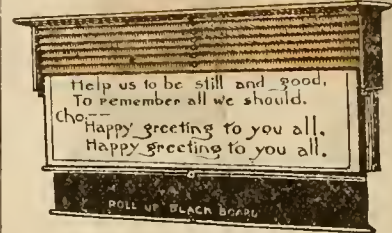 Help us to be still and good,
To remember all we should.
Cho:--
Happy greeting to you all.
Happy greeting to you all.
ROLL UP BLACK BOARD